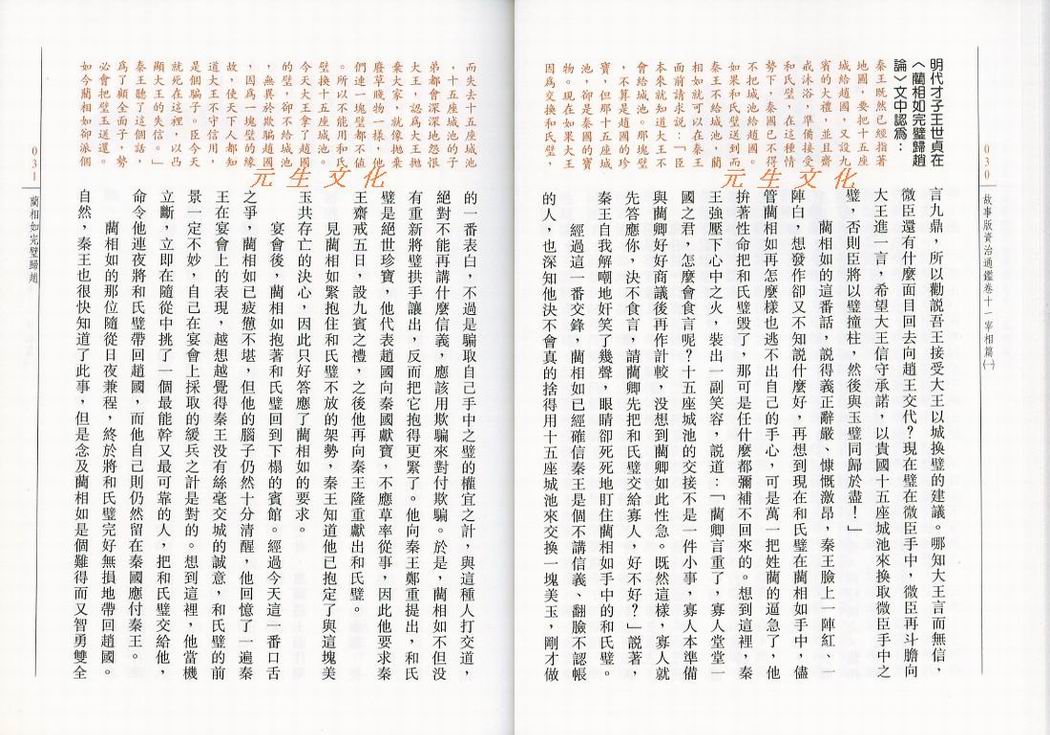 030
故事版資治通鑑卷十一 宰相篇㈠
明代才子王世貞在
〈藺相如完璧歸趙
論〉文中認為：
秦王既然已經指著
地圖，要把十五座
城給趙國，又設九
賓的大禮，並且齋
戒沐浴，準備接受
和氏璧，在這種情
勢下，秦國已不得
不把城給趙國了。
如果和氏璧送到而
秦王不給城池，藺
相如就可以在秦王
面前請求說：「臣
本來就知道大王不
會給城池。那塊璧
，不算是趙國的珍
寶，但那十五座城
卻是大王的寶
物。現在如果大王
因為交換和氏璧，
言九鼎，所以勸說吾王接受大王以城換璧的建議。哪知大王言而無信，
微臣還有什麼面目回去向趙王交代？現在璧在微臣手中，微臣再斗膽向
大王進一言，希望大王信守承諾，以貴國十五座城池來換取微臣手中之
璧，否則臣將以璧撞柱，然後與玉璧同歸於盡！」
藺相如的這番話，說得義正辭嚴、慷慨激昂，秦王臉上一陣紅、一
陣白，想發作卻又不知說什麼好，再想到現在和氏璧在藺相如手中，儘
管藺相如再怎麼樣也逃不出自己的手心，可是萬一把姓藺的逼急了，他
拚著性命把和氏璧毀了，那可是任什麼都彌補不回來的。想到這裡，秦
王強壓下心中之火，裝出一副笑容，說道：「藺卿言重了，寡人堂堂一
國之君，怎麼會食言呢？十五座城池的交接不是一件小事，寡人本準備
與藺卿好好商議後再作計較，沒想到藺卿如此性急。既然這樣，寡人就
先答應你，決不食言，請藺卿先把和氏璧交給寡人，好不好？」說著，
秦王自我解嘲地奸笑了幾聲，眼睛卻死死地盯住藺相如手中的和氏璧。
經過這一番交鋒，藺相如已經確信秦王是個不講信義、翻臉不認帳
的人，也深知他決不會真的捨得用十五座城池來交換一塊美玉，剛才做
元生文化
而失去十五座城池
，十五座城池的子
弟都會深深地怨恨
大王，認為大王拋
棄大家，就像拋棄
廢草賤物一樣，他
們連一塊璧都不值
。所以不能用和氏
璧換十五座城池。
今天大王拿了趙國
的璧，卻不給城池
，無異於欺騙趙國
，因為一塊璧的緣
故，使天下人都知
道大王不守信用，
是個騙子。臣今天
就死在這裡，以凸
顯大王的失信。」
秦王聽了這個話，
為了顧全面子，勢
必會把璧玉送還。
如今藺相如卻派個
的一番表白，不過是騙取自己手中之璧的權宜之計，與這種人打交道，
絕對不能再講什麼信義，應該用欺騙來對付欺騙。於是，藺相如不但沒
有重新將璧拱手讓出，反而把它抱得更緊了。他向秦王鄭重提出，和氏
璧是絕世珍寶，他代表趙國向秦國獻寶，不應草率從事，因此他要求秦
王齋戒五日，設九賓之禮，之後他再向秦王隆重獻出和氏璧。
見藺相如緊抱住和氏璧不放的架勢，秦王知道他已抱定了與這塊美
玉共存亡的決心，因此只好答應了藺相如的要求。
宴會後，藺相如抱著和氏璧回到下榻的賓館。經過今天這一番口舌
之爭，藺相如已疲憊不堪，但他的腦子仍然十分清醒，他回憶了一遍秦
王在宴會上的表現，越想越覺得秦王沒有絲毫交城的誠意，和氏璧的前
景一定不妙，自己在宴會上採取的緩兵之計是對的。想到這裡，他當機
立斷，立即在隨從中挑了一個最能幹又最可靠的人，把和氏璧交給他，
命令他連夜將和氏璧帶回趙國，而他自己則仍然留在秦國應付秦王。
藺相如的那位隨從日夜兼程，終於將和氏璧完好無損地帶回趙國。
自然，秦王也很快知道了此事，但是念及藺相如是個難得而又智勇雙全
元生文化
031
藺相如完璧歸趙